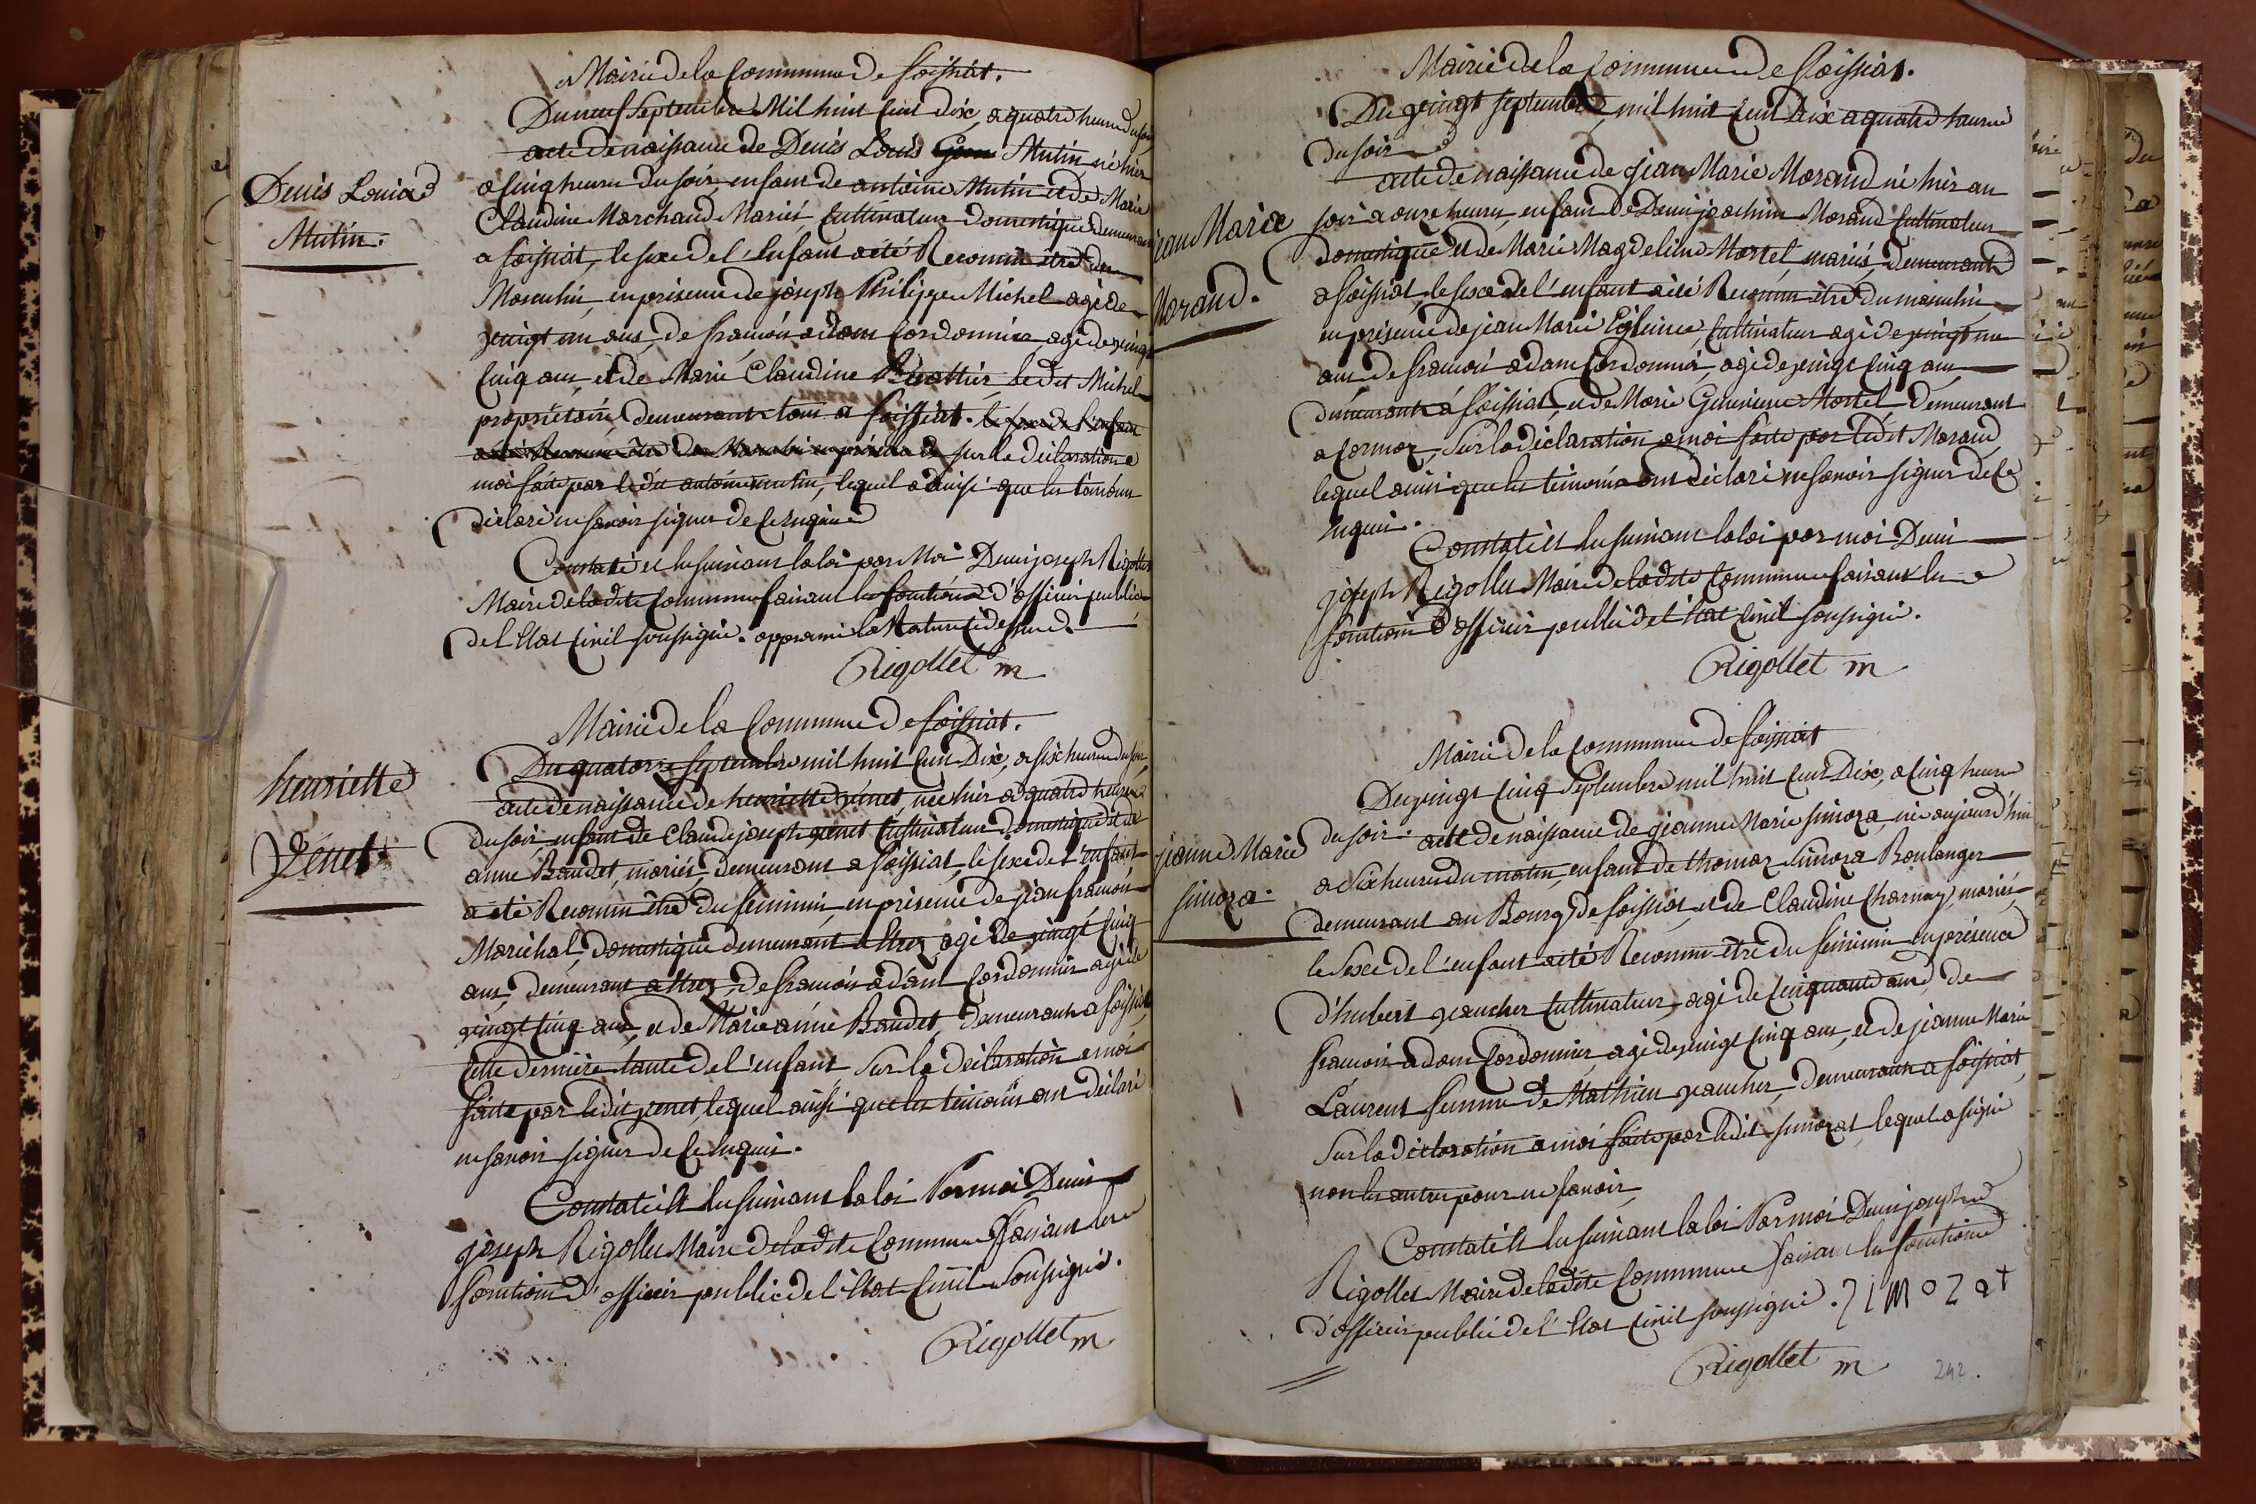 Mairie de la Commune de foissiat.
Du neuf Septembre Mil huit Cent dix, a quatre heure du soir
acte de naissance de Denis Louis Mutin né hier
Denis Louis
a Cinq heure du soir, enfant de antoine Mutin et de Marie
Claudine Marchand Mariés, Cultivateur Domestique demeurant
Mutin.
a foissiat, le sexe de l'Enfant a été Reconnu être du
Masculin, en presence de joseph Philippe Michel agé de
vingt un ans, de framois adam Cordonnier agé de vingt
Cinq ans, et de Marie Claudine ledit Michel
propriétaire, demeurant tous a foissiat. le sexe de l'enfant
a été Reconnu être du Masculin en présence de sur la déclaration a
moi faite par ledit antoine mutin, lequel ainsi que les temoins
déclaré ne savoir signer de Ce Enquis
Constaté et lu suivant la loi par Moi Denis joseph Rigollet
Maire de ladite Commune faisant les fonctions d'officier public
de l'Etat Civil soussigné. approuvé la Rature Cidessus.
Rigollet m
Mairie de la Commune de foissiat.
Du quatorze septembre mil huit Cent Dix, a six heure du soir
henriette
acte de naissance de henriette vénet, née hier a quatre heure
du soir, enfant de Claude joseph venet Cultivateur Domestique et de
Vénet
anne Baudet, mariés, demeurant a foissiat, le sexe de l'enfant
a été Reconnu être du féminin, en présence de jean framois
Maréchal, Domestique demeurant a Etrez agé de vingt Cinq
ans, demeurant a Etrez, de framois adam Cordonnier agé de
vingt Cinq ans, et de Marie anne Baudet, demeurant a foissiat
Cette dernière tante de l'enfant sur la déclaration a moi
faite par ledit venet, lequel ainsi que les témoins ont déclaré
ne savoir signer de Ce Enquis.
Constaté et lu suivant la loi Par moi Denis
joseph Rigollet Maire de ladite Commune faisant les
fonctions d'officier public de l'Etat Civil Soussigné.
Rigollet m
Mairie de la Commune de foissiat.
Du vingt septembre, mil huit Cent Dix a quatre heure
du soir
acte de naissance de jean Marie Morand né hier au
jean Marie
soir a onze heures, enfant de Denis joachim Morand Cultivateur
domestique et de Marie Magdeleine Martel, mariés, demeurants
Morand.
a foissiat, le sexe de l'enfant a été Reconnu être du masculin
en présence de jean Marie Cultivateur agé de vingt un
ans de framois adam Cordonnier, agé de vingt Cinq ans
demeurants a foissiat, et de Marie Genevieve Martel, demeurant
a Cormoz, sur la déclaration a moi faite par ledit Morand
lequel ainsi que les témoins ont déclaré ne savoir signer de Ce
Enquis.
Constaté et lu suivant la loi par moi Denis
joseph Rigollet Maire de ladite Commune faisant les
fonctions d'officier public de l'Etat Civil soussigné.
Rigollet m
Mairie de la Commune de foissiat
Du vingt Cinq Septembre mil huit Cent Dix, a Cinq heure
du soir. acte de naissance de jeanne Marie simoza, née aujourd'hui
jeanne Marie
a Six heures du matin, enfant de thomas Simoza Boulanger
simoza.
demeurant au Bourg de foissiat, et de Claudine Charnay, mariés,
le Sexe de l'enfant a été Reconnu être du féminin, en présence
d'hubert vaucher Cultivateur, agé de Cinquante ans, de
framois adam Cordonnier, agé de vingt Cinq ans, et de jeanne Marie
Laurent femme de Mathieu vaucher, demeurants a foissiat
sur la déclaration a moi faite par ledit simozat, lequel a signé
non les autres pour ne savoir
Constaté et lu suivant la loi Par moi Denis joseph
Rigollet Maire de ladite Commune faisant les fonctions
d'officier public de l'Etat Civil soussigné. Simozat
Rigollet m
242.